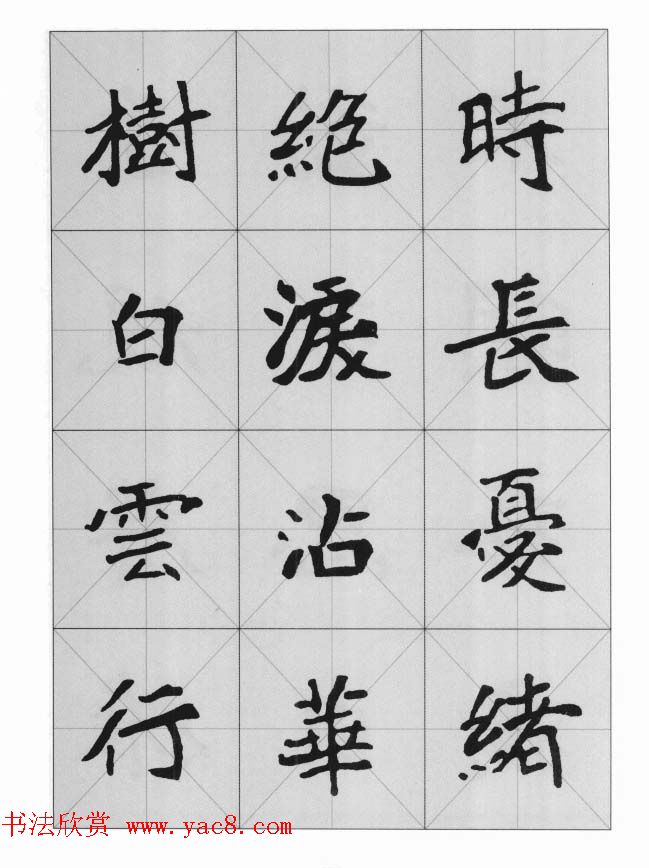 時長憂緒
絕淚沾華
樹白雲行
书法欣赏 www.yac8.com